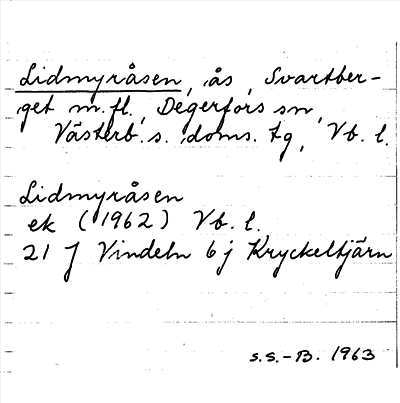 Lidmyråsen, ås, Svartber-
get m.fl., Degerfors sn,
Västerb. s. doms. tg, Vb. l.
Lidmyråsen
ek (1962) Vb. l.
21 J Vindeln 6j Kryckeltjärn
S.S.-B. 1963